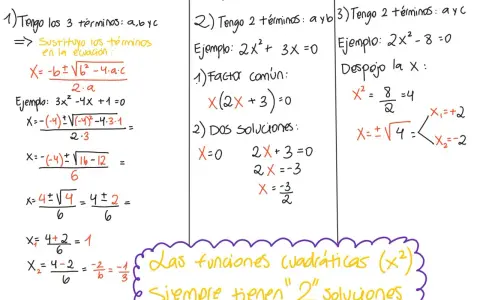 1) Tengo los 3 términos: a, b y c
=> Sustituyo los términos
en la ecuación
X = -b ± √b² - 4·a·c
2·a
Ejemplo: 3x² - 4x + 1 = 0
X = -(-4) ± √(-4)² - 4·3·1 =
2·3
X = -(-4) ± √16 - 12 =
6
X = 4 ± √4 = 4 ± 2 =
6 6
X₁ = 4 + 2 = 1
6
X₂ = 4 - 2 = -2 = -1
6 6 3
2) Tengo 2 términos: a y b
Ejemplo: 2x² + 3x = 0
1) Factor común:
X(2X + 3) = 0
2) Dos soluciones:
X = 0 2X + 3 = 0
2X = -3
X = -3
2
3) Tengo 2 términos: a y c
Ejemplo: 2X² - 8 = 0
Despejo la X:
X² = 8 = 4
2
X = ± √4 =
X₁ = +2
X₂ = -2
Las funciones cuadráticas (x²)
siempre tienen "2" soluciones